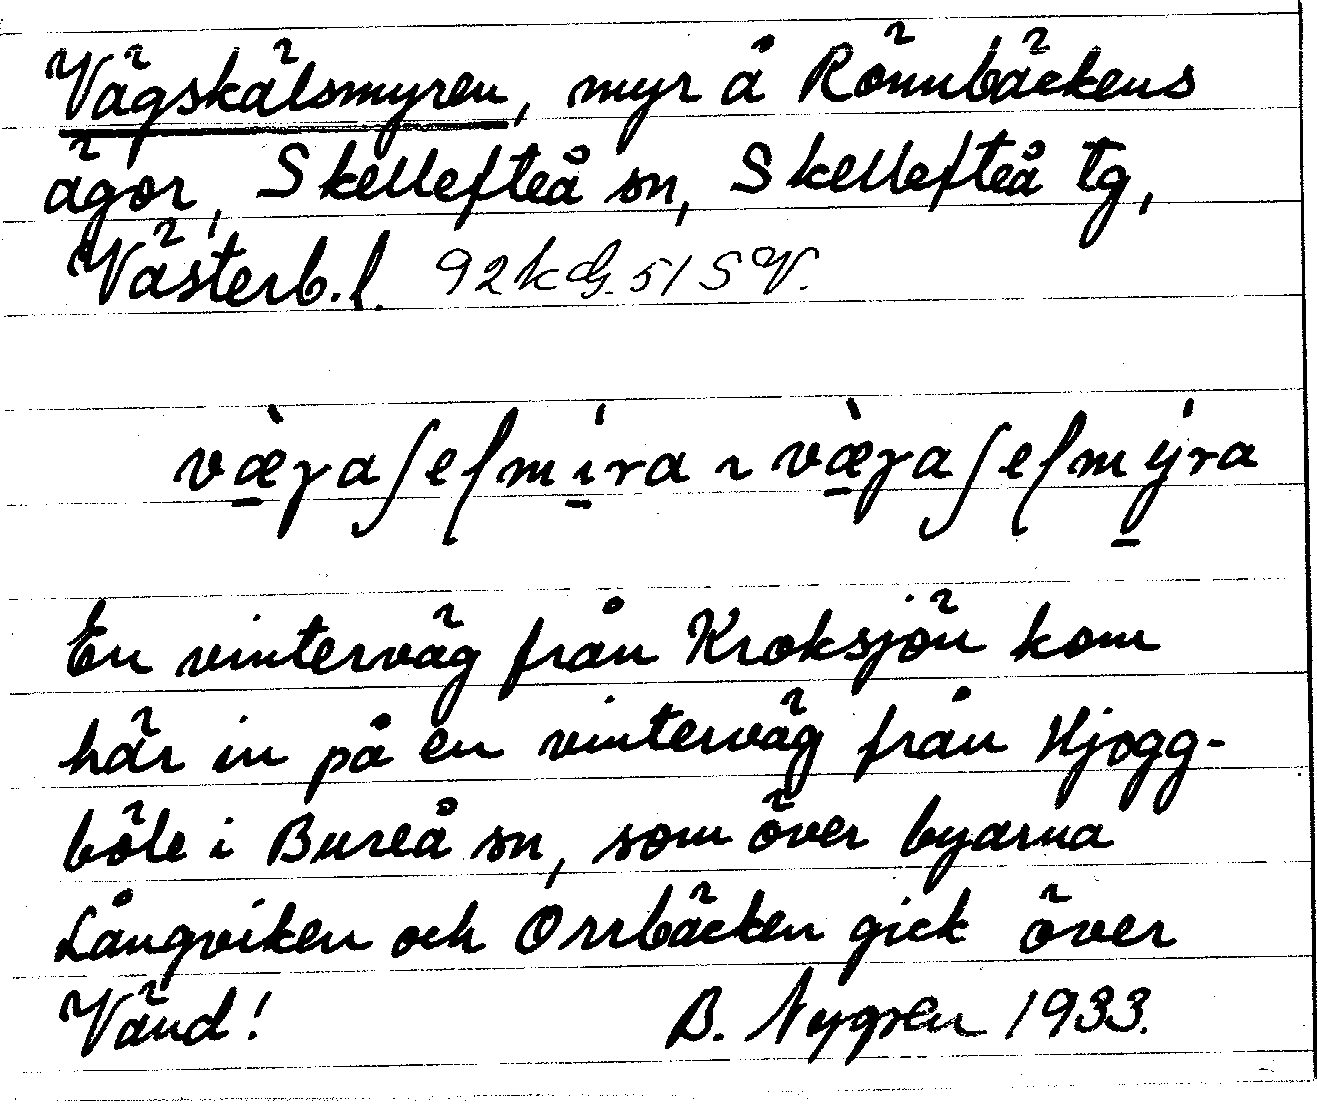 Vägskälsmyren, myr å Rönnbäckens
ägor, Skellefteå sn, Skellefteå tg,
Västerb.l. 92kG.51SV.
væ̀gaʃelmi̍ra ~ væ̀gaʃelmy̍ra
En vinterväg från Kroksjön kom
här in på en vinterväg från Hjogg-
böle i Bureå sn, som över byarna
Långviken och Orrbäcken gick över
Vänd! B. Nygren 1933.